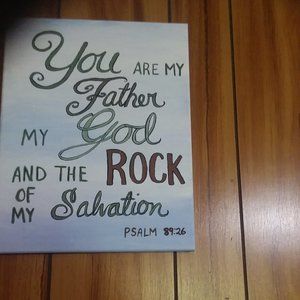 You ARE MY
Father
MY God
AND THE ROCK
OF
MY Salvation
PSALM 89:26